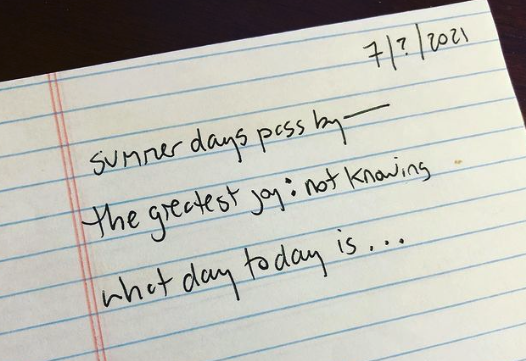 7/?/2021
summer days pass by—
the greatest joy: not knowing
what day today is...